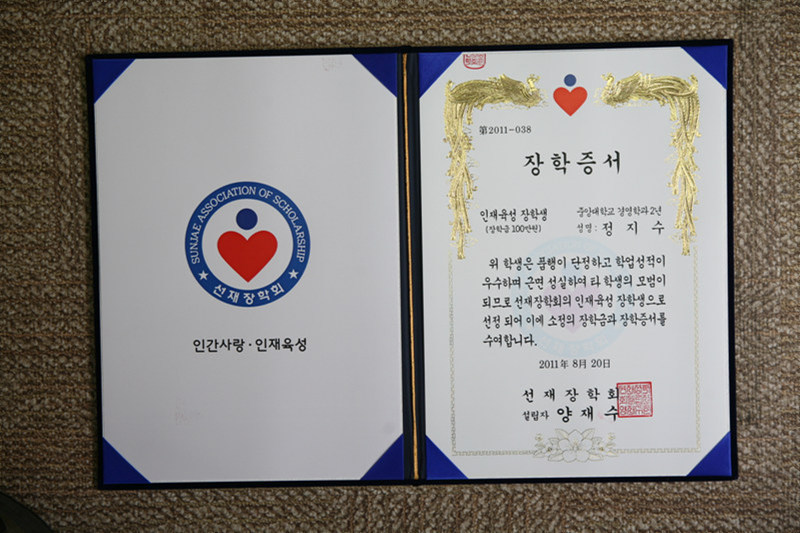 SUNJAE ASSOCIATION OF SCHOLARSHIP
선재장학회
인간사랑·인재육성
第2011-038
장학증서
인재육성 장학생 중앙대학교 경영학과 2년
(장학금 100만원) 성명 : 정지수
위 학생은 품행이 단정하고 학업성적이
우수하며 근면 성실하여 타 학생의 모범이
되므로 선재장학회의 인재육성 장학생으로
선정 되어 이에 소정의 장학금과 장학증서를
수여합니다.
2011年 8月 20日
선재장학회
설립자 양재수